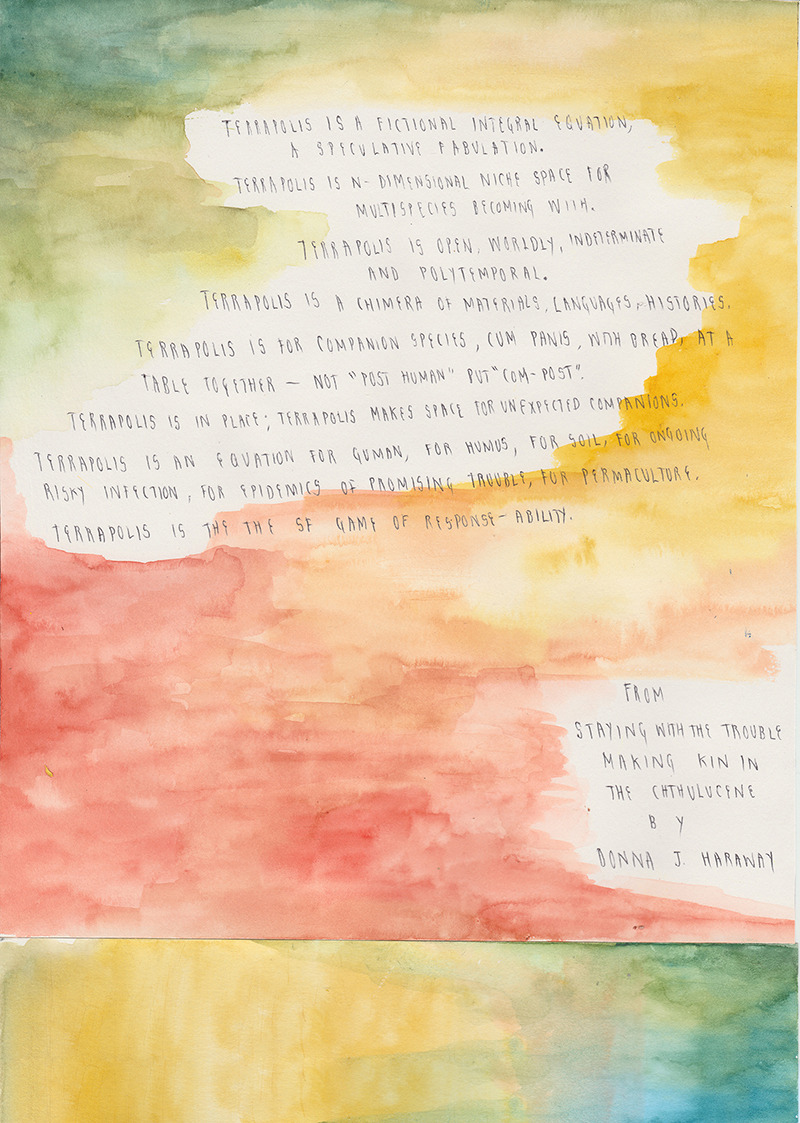 TERRAPOLIS IS A FICTIONAL INTEGRAL EQUATION,
A SPECULATIVE FABULATION.
TERRAPOLIS IS N-DIMENSIONAL NICHE SPACE FOR
MULTISPECIES BECOMING WITH.
TERRAPOLIS IS OPEN, WORLDLY, INDETERMINATE
AND POLYTEMPORAL.
TERRAPOLIS IS A CHIMERA OF MATERIALS, LANGUAGES, HISTORIES.
TERRAPOLIS IS FOR COMPANION SPECIES, CUM PANIS, WITH BREAD, AT A
TABLE TOGETHER – NOT "POST HUMAN" PUT "COM-POST".
TERRAPOLIS IS IN PLACE; TERRAPOLIS MAKES SPACE FOR UNEXPECTED COMPANIONS.
TERRAPOLIS IS AN EQUATION FOR GUMAN, FOR HUMUS, FOR SOIL, FOR ONGOING
RISKY INFECTION, FOR EPIDEMICS OF PROMISING TROUBLE, FOR PERMACULTURE.
TERRAPOLIS IS THE THE SF GAME OF RESPONSE-ABILITY.
FROM
STAYING WITH THE TROUBLE
MAKING KIN IN
THE CHTHULUCENE
BY
DONNA J. HARAWAY